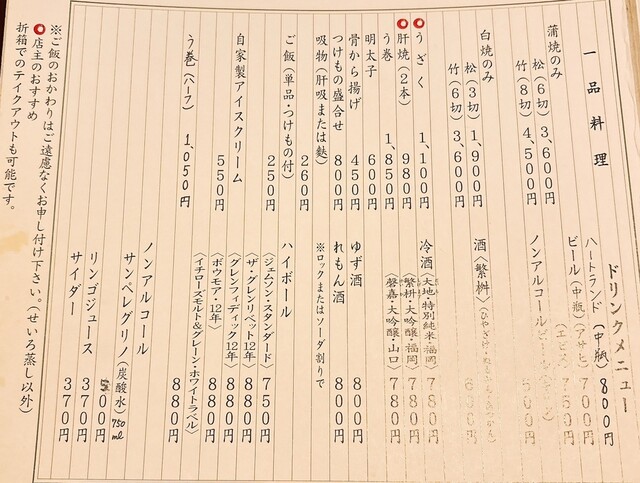 一品料理
蒲焼のみ
松(6切) 3,600円
竹(8切) 4,500円
白焼のみ
松(3切) 1,900円
竹(6切) 3,600円
うざく 1,100円
肝焼(2本) 980円
う巻 1,850円
明太子 600円
骨から揚げ 450円
つけもの盛合せ 800円
吸物(肝吸または麩) 260円
ご飯(単品・つけもの付) 250円
自家製アイスクリーム 550円
う巻(ハーフ) 1,050円
ドリンクメニュー
ハートランド(中瓶) 800円
ビール(中瓶)(アサヒ) 700円
(エビス) 750円
ノンアルコールビール 500円
酒〈繁桝〉
冷酒〈大地・特別純米・福岡〉 780円
〈繁枡・大吟醸・福岡〉 780円
〈磬嘉・大吟醸・山口〉 780円
ゆず酒 800円
れもん酒 800円
※ロックまたはソーダ割りで
ハイボール
〈ジェムソン・スタンダード〉 750円
〈ザ・グレンリベット12年〉 880円
〈グレンフィディック12年〉 880円
〈ボウモア・12年〉 880円
〈イチローズモルト&グレーン・ホワイトラベル〉 880円
ノンアルコール
サンペレグリノ(炭酸水) 750ml 00円
リンゴジュース 370円
サイダー 370円
※ご飯のおかわりはご遠慮なくお申し付け下さい。(せいろ蒸し以外)
店主のおすすめ
折箱でのテイクアウトも可能です。